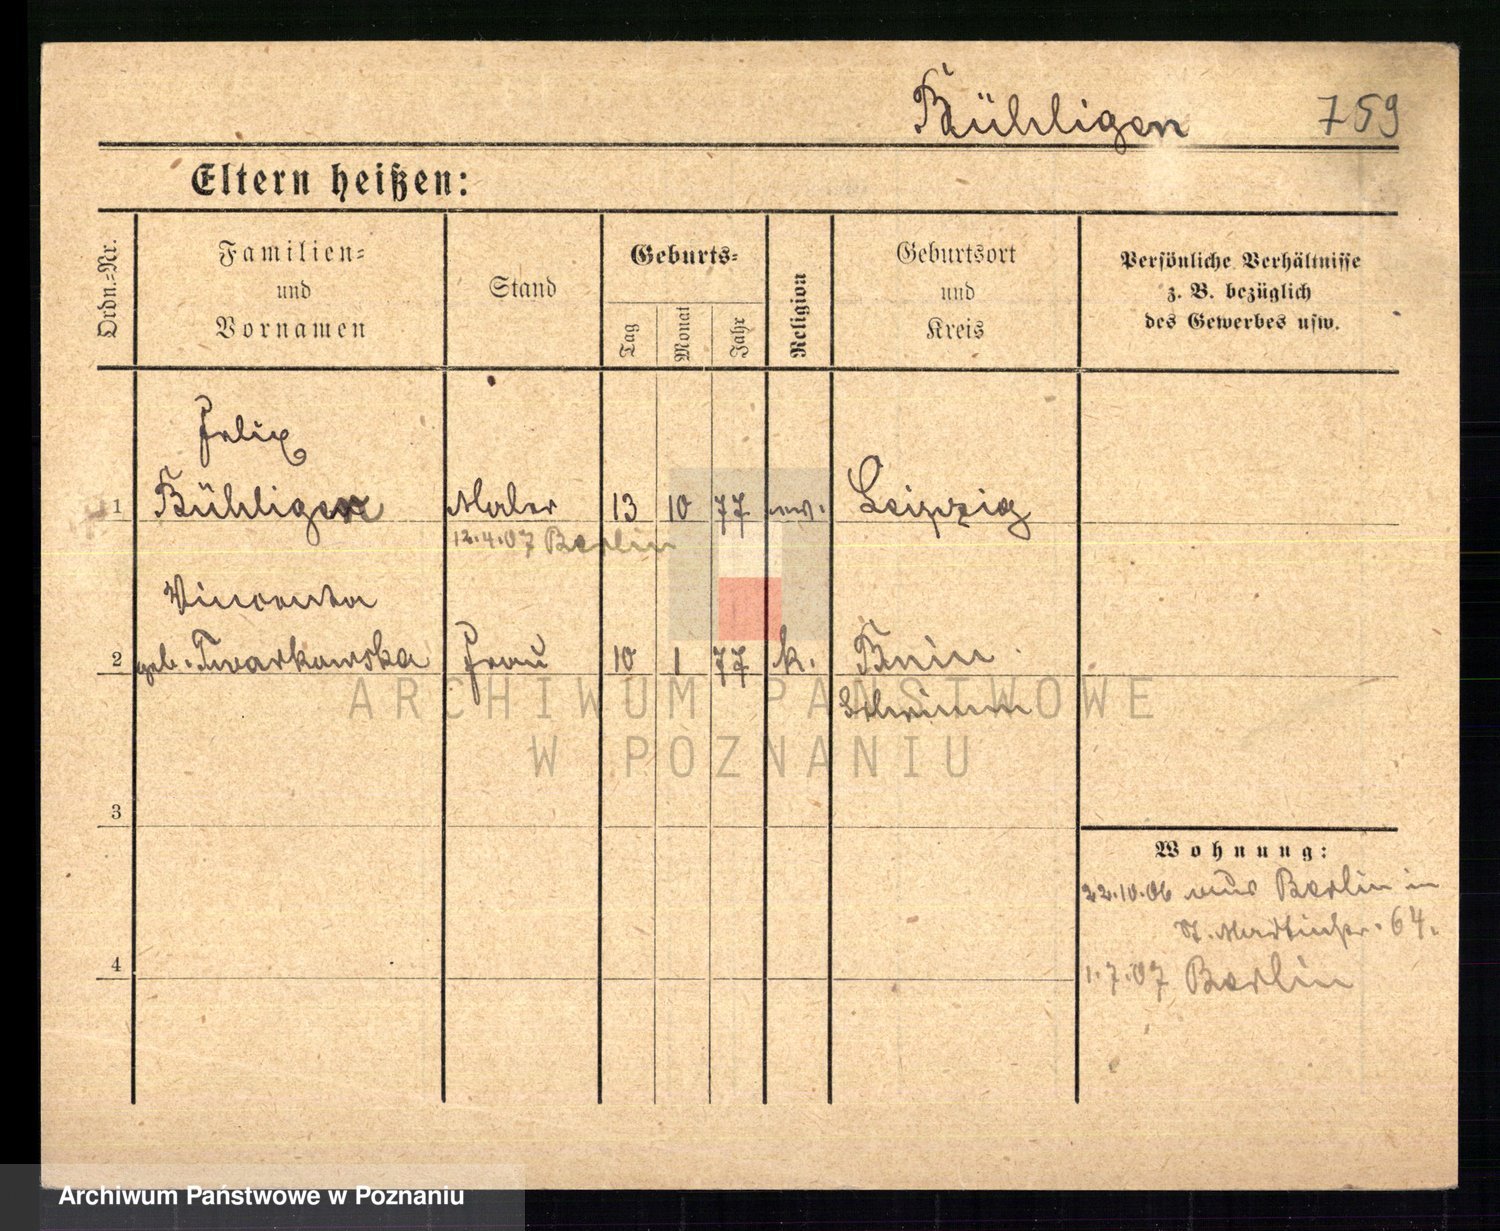 Bühligen 759
Eltern heißen:
Ordn.-Nr.
Familien-
und
Vornamen
Stand
Geburts-
Tag
Monat
Jahr
Religion
Geburtsort
und
Kreis
Persönliche Verhältnisse
z. B. bezüglich
des Gewerbes usw.
Felix
1 Bühligen Maler 13 10 77 ev. Leipzig
12.4.07 Berlin
Vincenta
2 geb. Twarkowska Frau 10 1 77 k. Bnin
Schrimm
ARCHIWUM PAŃSTWOWE
W POZNANIU
3
Wohnung:
22.10.06 aus Berlin in
St. Martinstr. 64.
4
1.7.07 Berlin
Archiwum Państwowe w Poznaniu